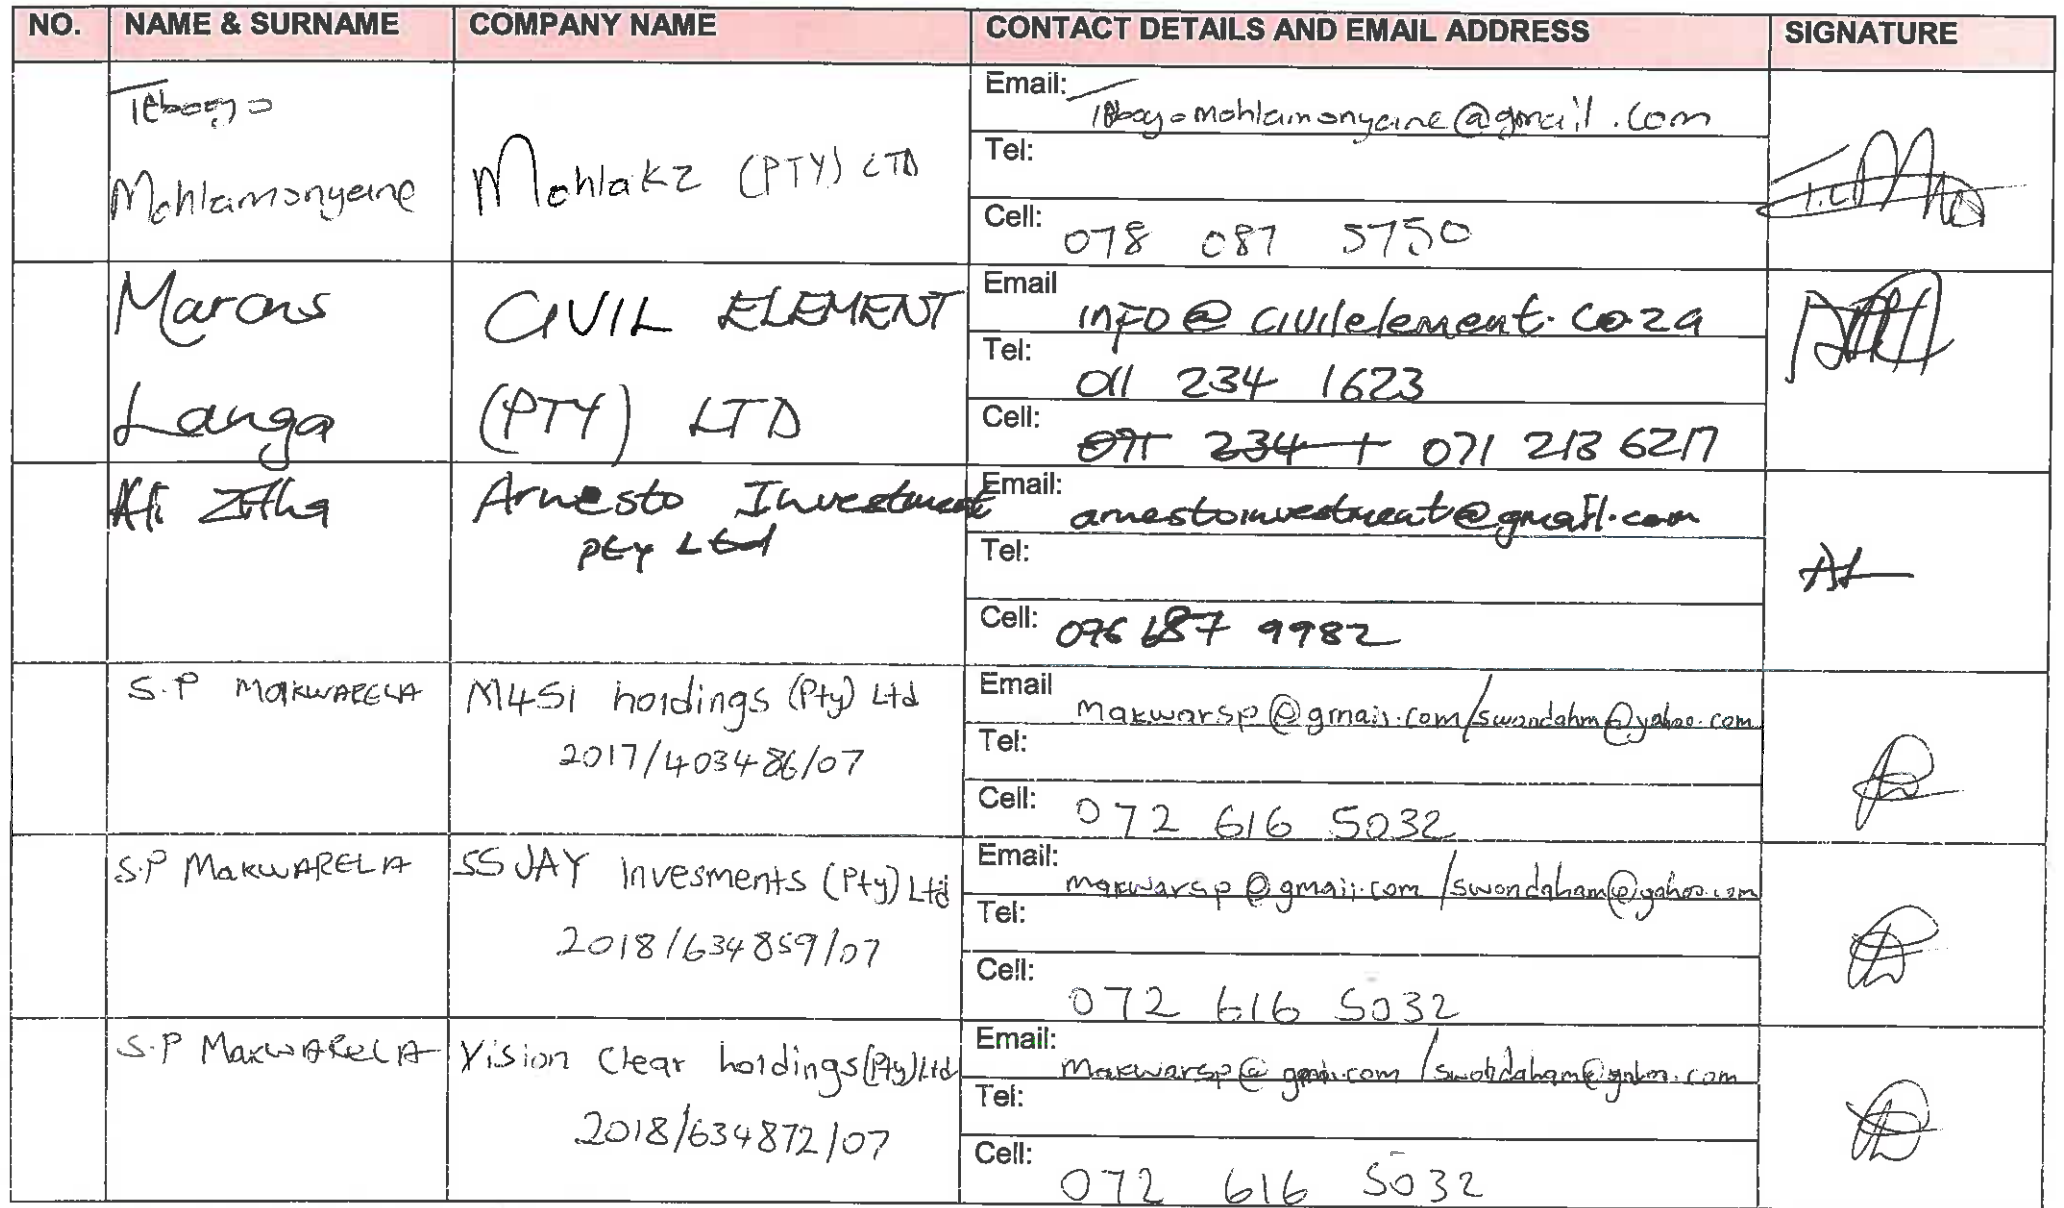 NO. NAME & SURNAME COMPANY NAME CONTACT DETAILS AND EMAIL ADDRESS SIGNATURE
Tebogo
Mohlamonyane
Mohlakz (PTY) LTD
Email: Tebogomohlamonyane@gmail.com
Tel:
Cell: 078 087 5750
Marcus
Langa
CIVIL ELEMENT
(PTY) LTD
Email info@civilelement.co.za
Tel: 011 234 1623
Cell: 071 234 1 071 213 6217
Zitha
Arnesto Investment
pty Ltd
Email: arnestoinvestment@gmail.com
Tel:
Cell: 076 687 9982
S.P MAKWARELA
M4SI holdings (Pty) Ltd
2017/403486/07
Email makwarsp@gmail.com/swondahm@yahoo.com
Tel:
Cell: 072 616 5032
S.P MAKWARELA
SSJAY Invesments (Pty) Ltd
2018/634859/07
Email: makwarsp@gmail.com/swondaham@yahoo.com
Tel:
Cell: 072 616 5032
S.P MAKWARELA
Vision Clear holdings (Pty) Ltd
2018/634872/07
Email: Makwarsp@gmail.com/swondaham@yahoo.com
Tel:
Cell: 072 616 5032